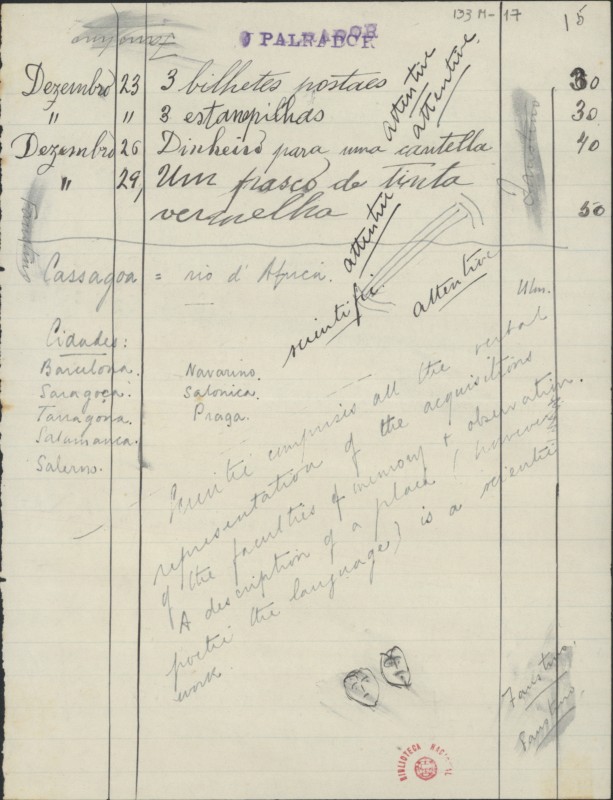 133 M-17
15
O PALRADOR
Dezembro 23 3 bilhetes postaes 30
" " 3 estampilhas 30
Dezembro 26 Dinheiro para uma cautella 40
" 29, Um frasco de tinta
vermelha 50
attentive
attentive
attentive
attentive
Cassagoa = rio d'Africa.
Ulm.
Cidades:
Barcelona. Navarino.
Saragoça. Salonica.
Tarragona. Praga.
Salamanca.
Salerno.
comprises all the verbal
representation of the acquisitions
of the faculties of memory & observation.
A description of a place (however
poetic the language) is a scientific
work.
Faustino
Faustino
BIBLIOTECA NACIONAL